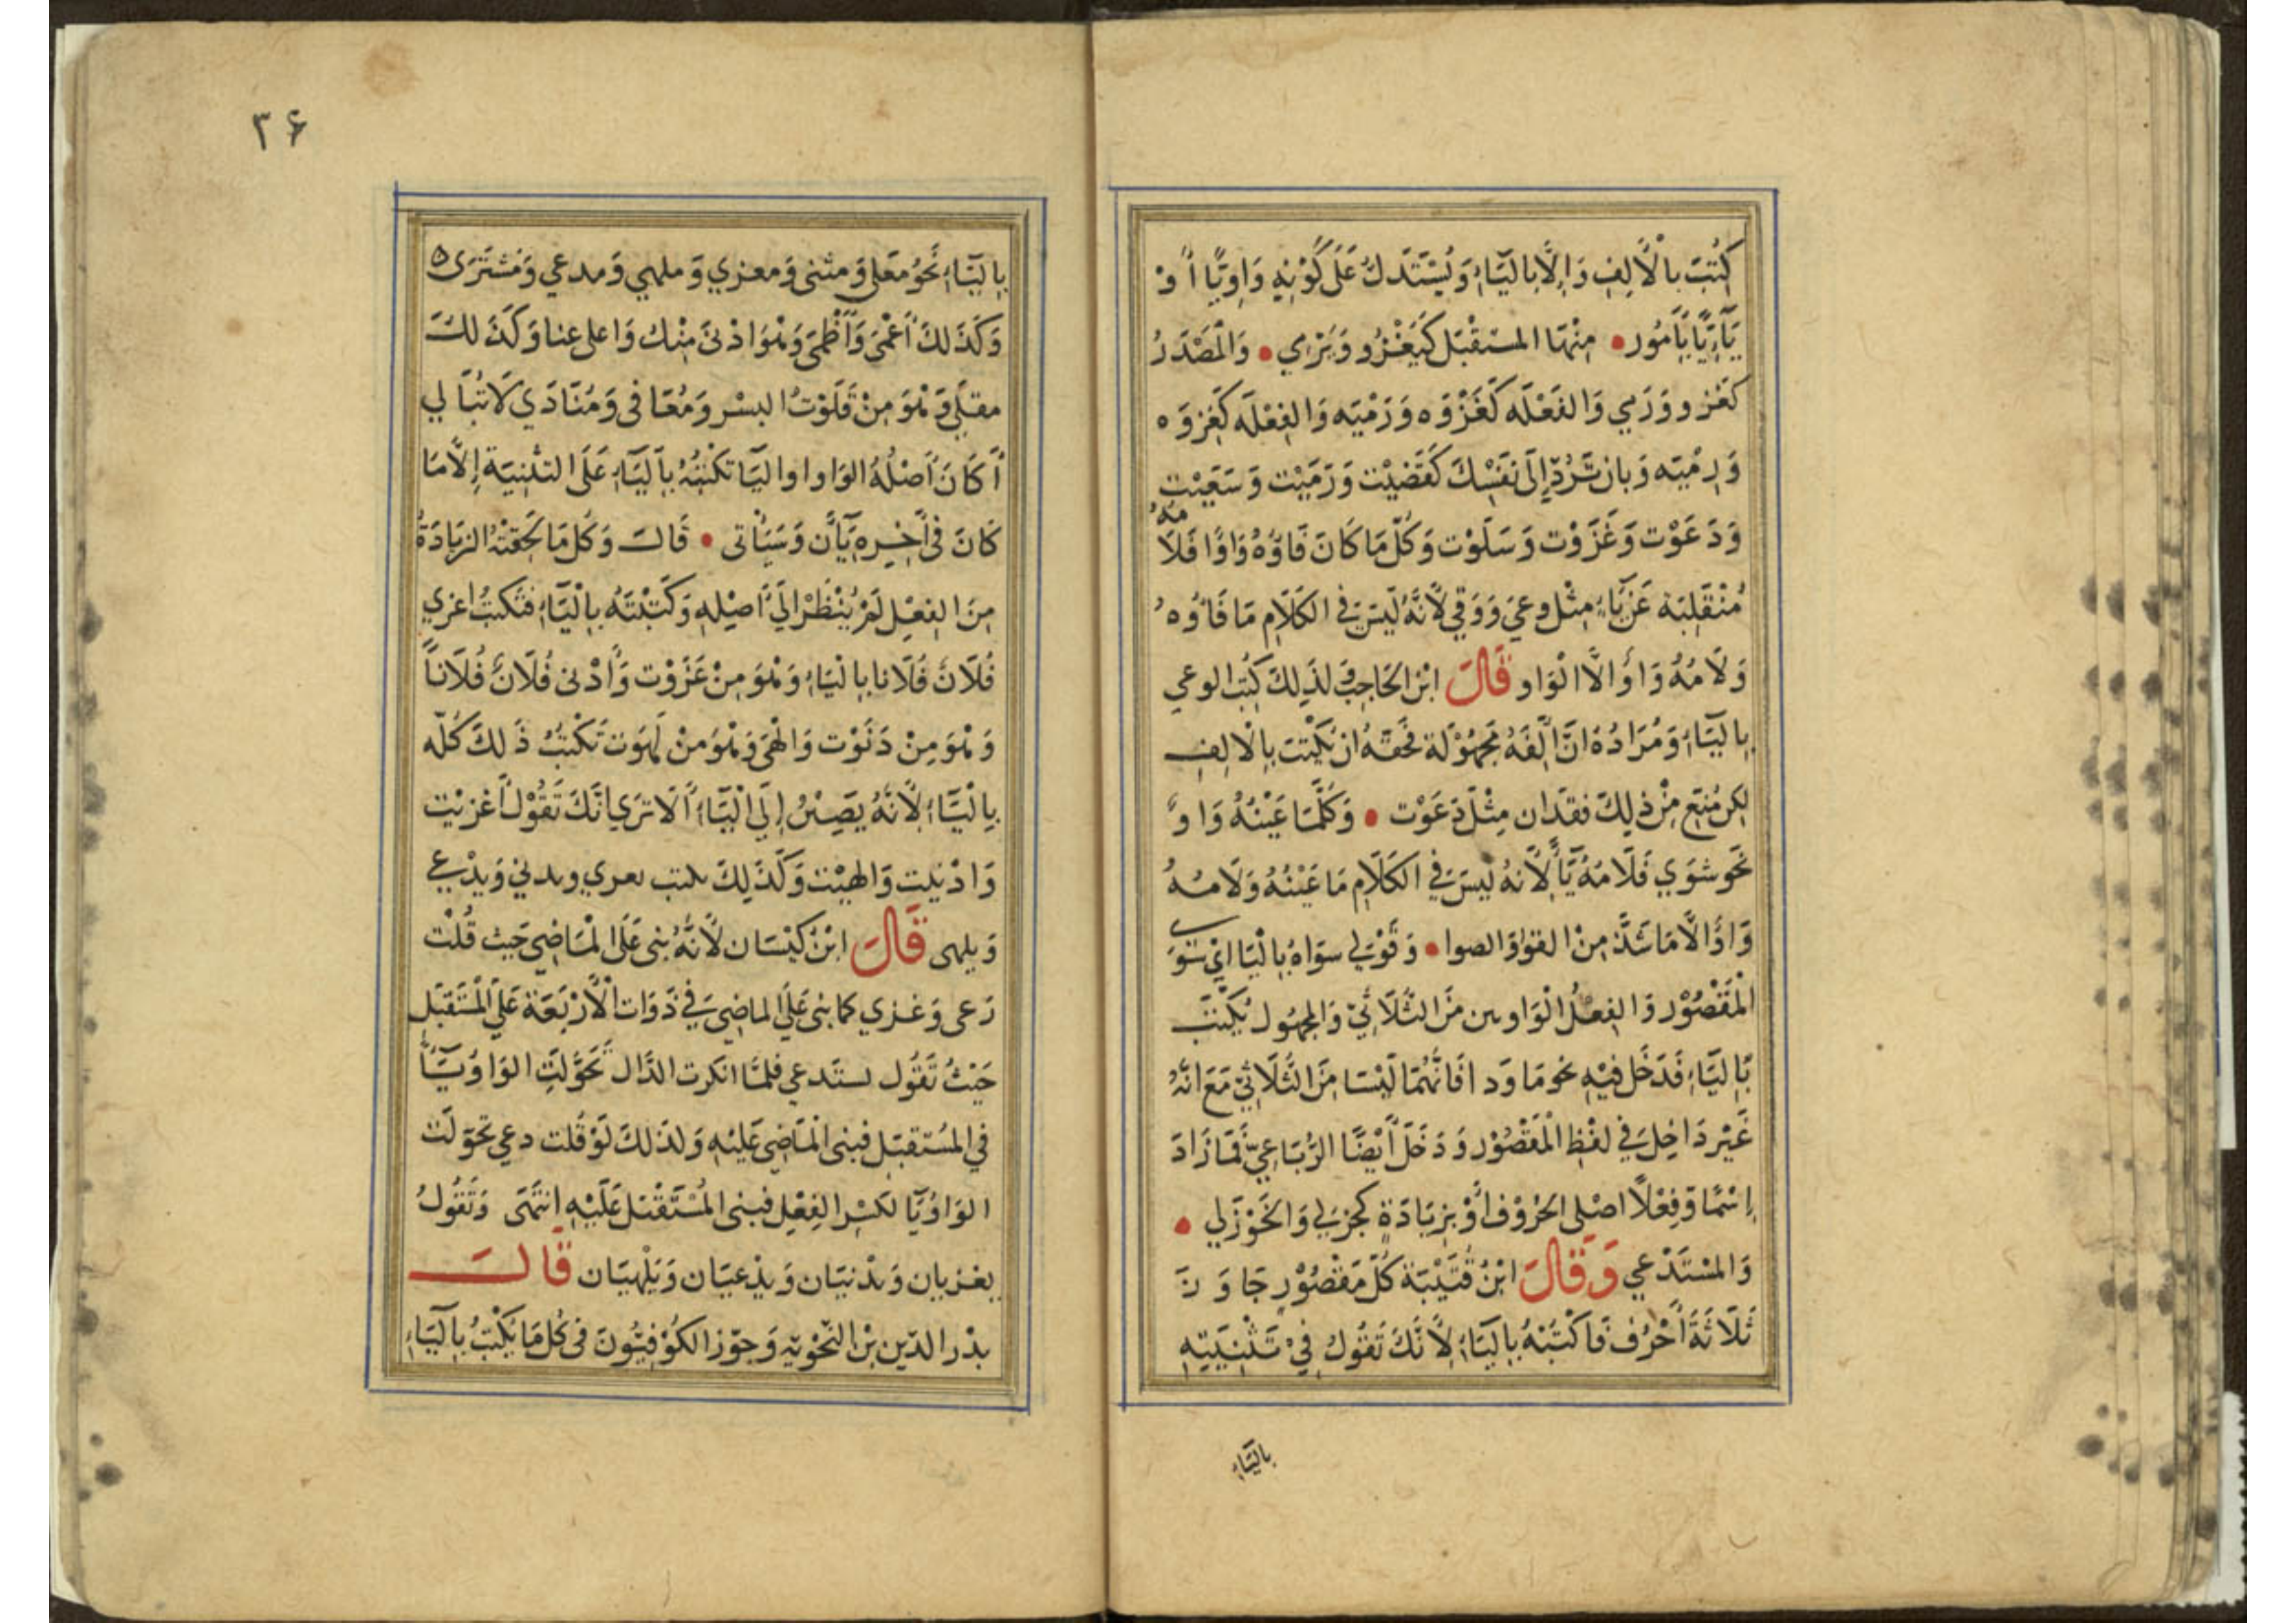 كُتِبَ بالْأَلِفِ وَاِلَّا بالَيَّاءِ وَيُسْتَدَلُّ عَلَى كَوْنِهِ وَاوِيًّا أَوْ
يَائِيًّا بِأُمُور • مِنْهَا المسْتقْبَل كَيَغْزُو وَيَرْمِي • وَالْمَصْدَرُ
كغَزو وَرَمي وَالفَعْلَه كَغَزْوَه وَرَمْيَه وَالفِعْلَه كَغِزوَه
وَرِمْيَه وَبان تَرُدَّ إِلَى نفَسْكَ كَقَضَيْت وَرَمَيْت وَسَعَيْت
وَدَعَوْت وَغَزَوْت وَسَلَوْت وَكُلّ مَا كَانَ فَاؤُهُ وَاوًا فَلَامُهُ
مُنْقَلِبَة عَنْ يَاءٍ مِثْل وعَي وَوَقي لأَنَّهُ لَيسَ في الكَلَام مَا فَاؤُهُ
وَلَامُهُ وَاوٌ الَّا الْوَاو قَالَ ابْن الحَاجِب وَلذَلِكَ كُتِبَ الوعي
بِاليَاءِ وَمُرَادُهُ انَّ أَلِفَهُ مَجهُوْلَة فحَقهُ ان يكْتبَ بِالْالِفِ
لكِن مُنِعَ مِنْ ذلِكَ فقدَان مِثْل دَعَوْت • وَكُلَّمَا عَيْنُهُ وَاوٌ
نَحَو شوَي فَلَامُهُ يَاءٌ لأَنهُ لَيسَ في الكَلَامِ مَا عَيْنُهُ وَلَامُهُ
وَاوٌ الَّا مَا شَذَّ مِنْ القوَاوَ الصوا • وَقَوْلي سوَاهُ بِالْيَا اىْ سِوَى
الْمَقْصُوْر وَالفِعْلُ الْوَاوين مِنَ الثُّلَاثِيّ وَالمجهُول يُكْتَبُ
بَاِليَاءِ فَدَخَل فيْهِ نحو مَا وَدا فَانَّهُمَا لَيْسَا مِنَ الثُّلَاثيّ مَعَ انّهُ
غَيْر دَاخِل في لفْظِ الْمَقْصُوْر وَدَخَلَ أَيْضًا الرُّبَاعِيّ فَمَا زَادَ
اِسْمًا وَفِعْلًا اصْلى الحُرُوْف أَوْ بِزيَادَةٍ كجزلي وَالخَوْزَلي •
وَالمسْتَدْعي وَقَالَ ابْنُ قُتَيْبَة كُلّ مَقْصُوْرٍ جَاوَزَ
ثَلَاثَةَ أَحْرُف فَاكْتبْهُ بِاليَاءِ لأَنَّكَ تَقُولُ فِيْ تَثْنِيَتِهِ
بالَيَاءِ
٣۶
بِاليَّاءِ نَحُوُ مَعلى وَمثنى وَمعزي وَملهي وَمدعي وَمشتَرَى ه
وَكَذَلكَ أَعْمَىَ وَأَظْمَىَ وَهُوَ ادْنىَ مِنْك وَاعلى عنا وَكَذَلكَ
مقلَى وَهُوَ مِنْ قَلَوْتُ البسْر وَمُعَافى وَمُنَادَي لَا تُبَالي
أَكَانَ أَصْلُهُ الوَاو او اليَا تكْتبُهُ باليَاءِ عَلَى التثْنِيَة إِلَّا مَا
كَانَ في آخِرِهِ يَآن وَسَيَأْتي • قَالَ وَكُل مَا لحَقِتْهُ الزيَادَةُ
مِنَ الفِعْلِ لَمْ يُنْظَرْ الَي أَصْلِهِ وَكَتَبْتَهُ بِالْيَاءِ فتكتبُ اغزي
فُلَانٌ فُلَانا بِالْيَاءِ وَهُوَ مِنْ غَزَوْت وَأَدْنى فُلَانٌ فُلَاناً
وَهُوَ مِنْ دَنَوْت وَالْهَى وَهُوَ مِنْ لَهَوت تَكْتبُ ذَلكَ كُلّه
بِالْيَّاءِ لأَنَّهُ يَصِيْرُ إِلَى الْيَاءِ أَلَا تَرَي انَّكَ تَقُوْلُ أَغزيْت
وَادْنيت وَالهيْت وَكَذَلِكَ يكتب يعزي ويدني وَيدْعي
وَيلهى قَالَ ابْنُ كيْسَان لأَنَّهُ بنى عَلَى الْمَاضِي حَيث قُلْت
دَعى وَغزي كما بنى عَلَى الماضِي في ذَوَات الْأَرْبَعَة عَلَى الْمُسْتَقبَل
حَيْثُ تَقُول يستَدعي فلمَّا انكَرت الدَّال تَحَوَّلتِ الوَاو يَاءً
في المسُتقبَل فبنى الْمَاضِي عَليْهِ وَلذلكَ لَوْ قُلت دعي تحَوّلَت
الوَاوُ يَا لكسْر الفِعْلِ فبنى الْمُسْتَقْبَل عَلَيْهِ انتَهَى وَتَقُولُ
يغزيان وَيدْنيَان وَيدْعيَان وَيَلْهيَان قَالَ
بدْر الدّين بْن النّحْويه وَجوّز الكُوْفِيُّونَ في كُل مَا يُكْتَبُ بِاليَاءِ